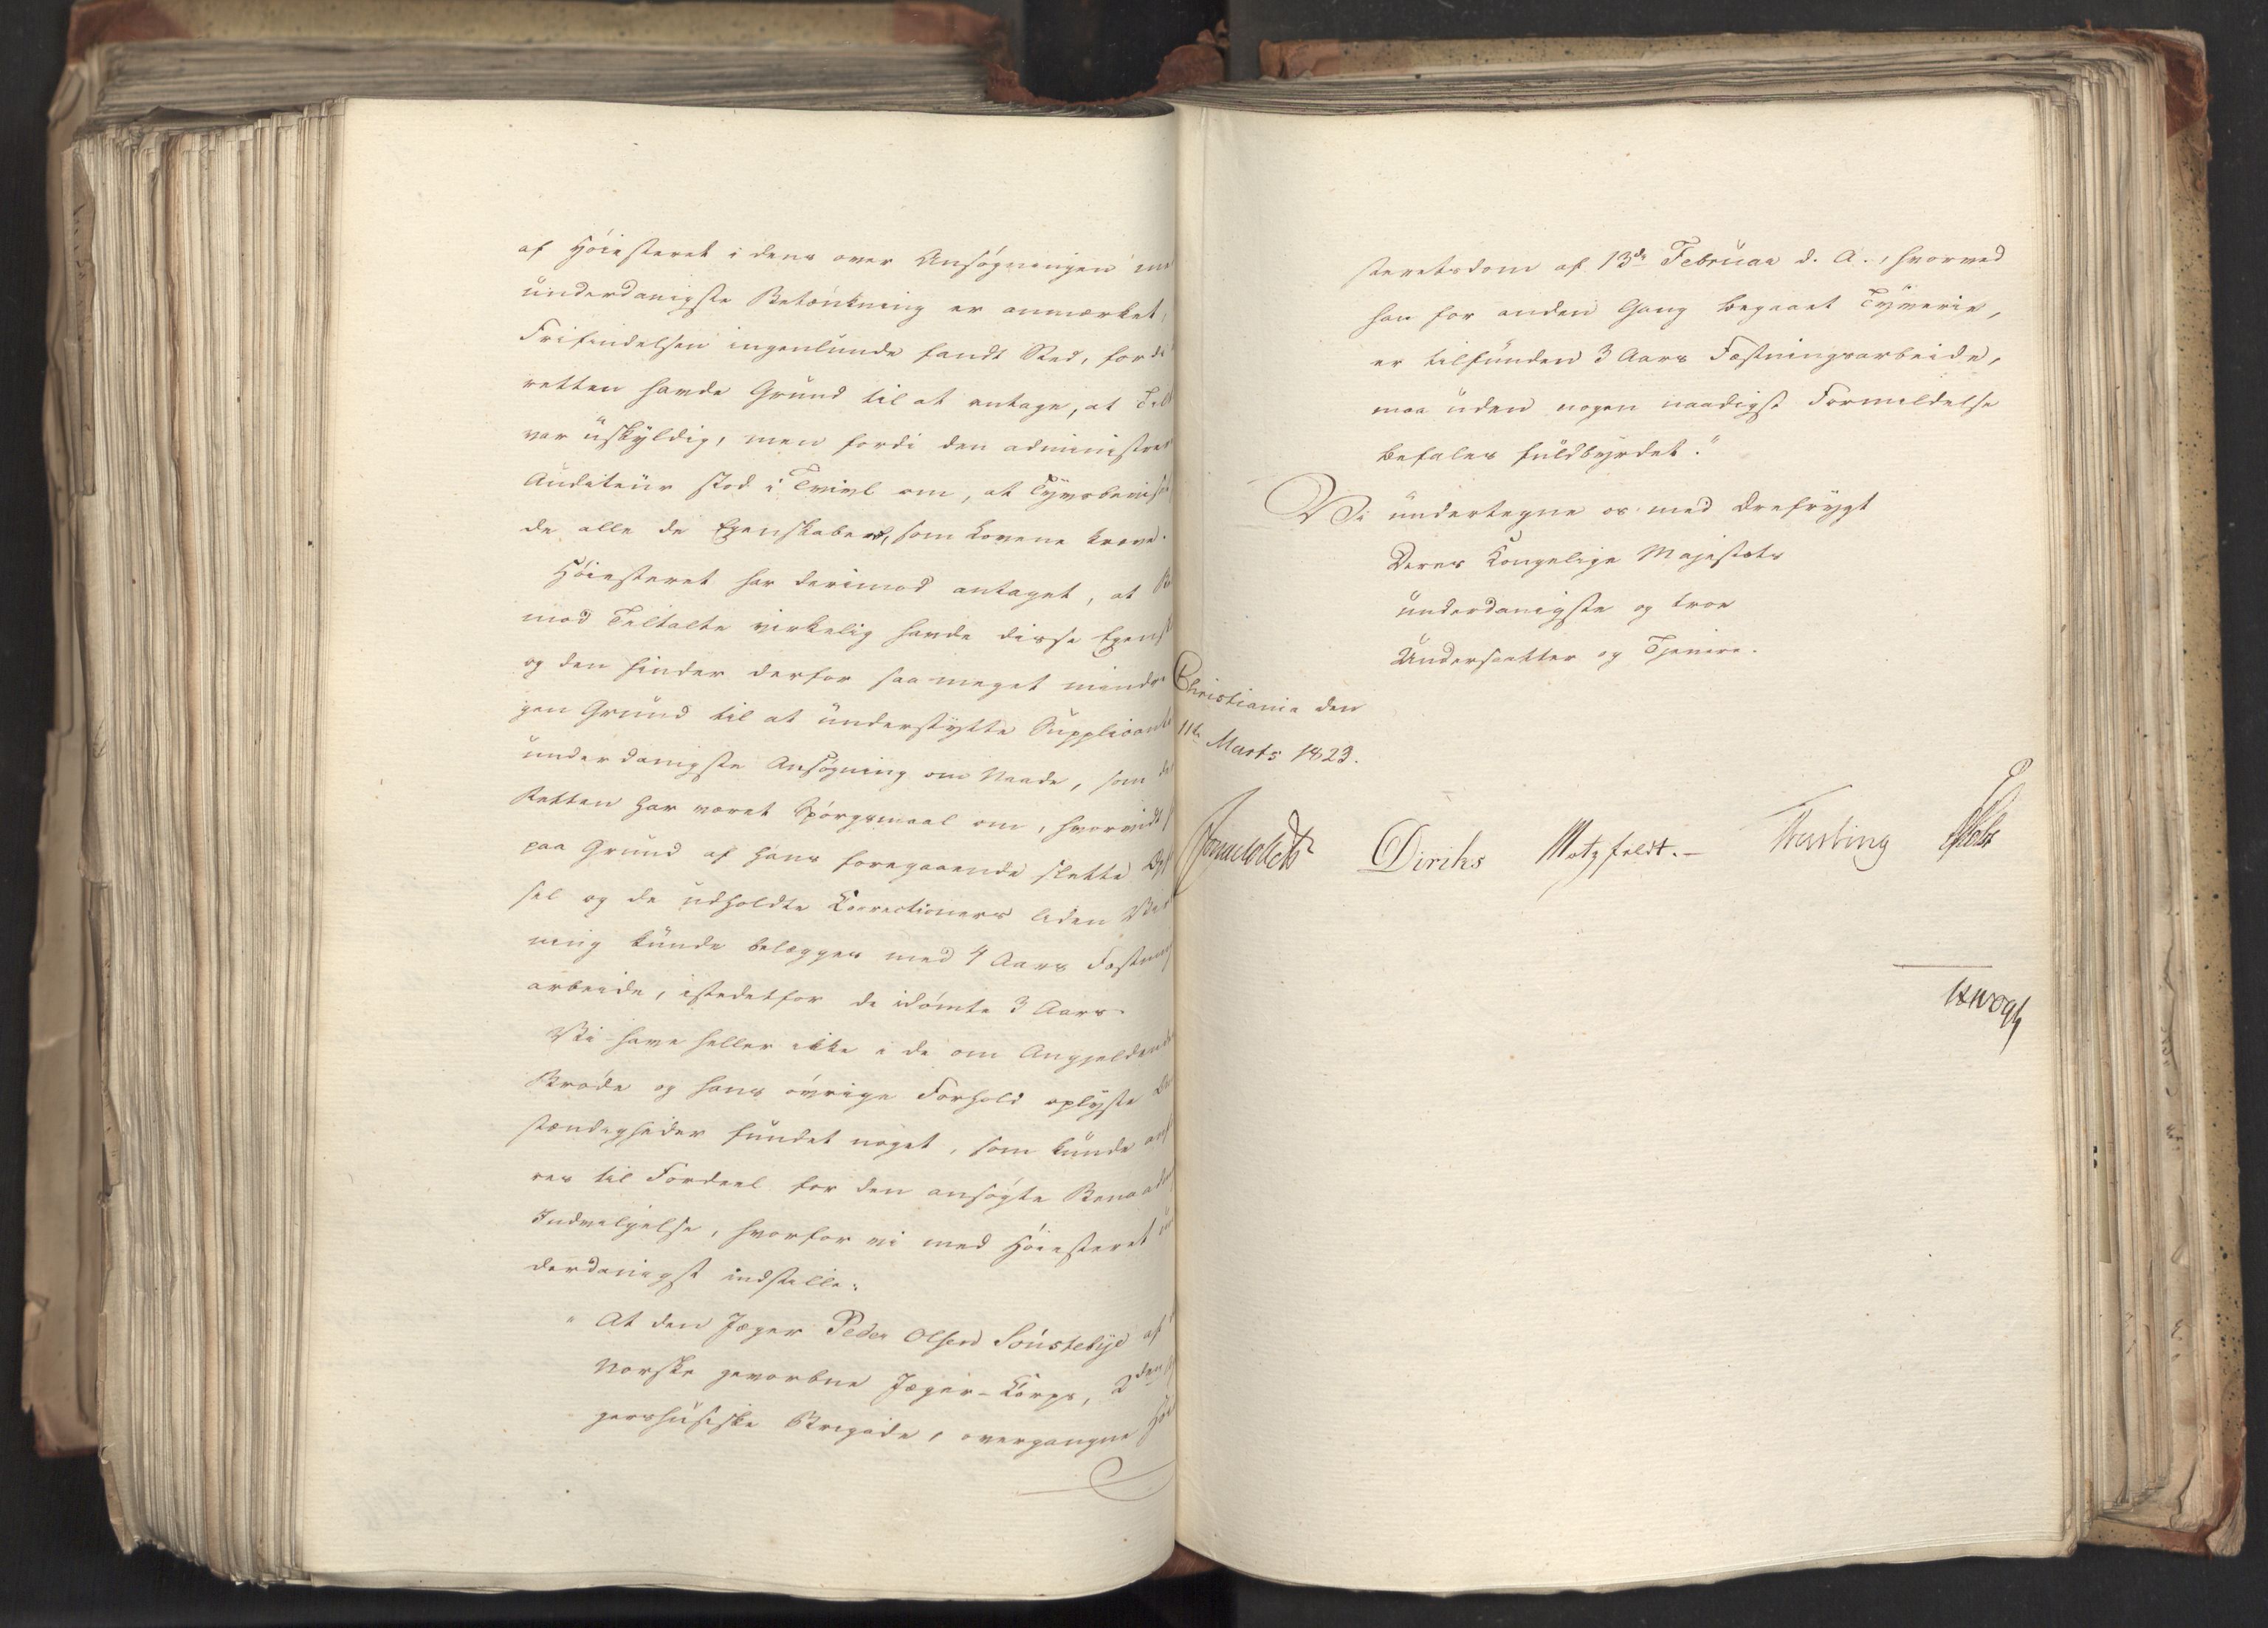 af Höiesteret i dens over Ansögningen
underdanigste Betænkning er anmærket,
Frifindelsen ingenlunde fandt Sted, fordi
retten havde Grund til at antage, at
var uskyldig, men fordi den
Auditeur stod i Tvivl om, at
de alle de Egenskaber, som Lovene kræve.
Höiesteret har derimod antaget, at
mod Tiltalte virkelig havde disse
og den finder derfor saa meget mindre
gen Grund til at understytte
underdanigste Ansögning om Naade, som
Retten har været Spörgsmaal om, hvorvidt
paa Grund af hans foregaaende slette
sel og de udholdte Correctioners liden
ning kunde belægges med 4 Aars
arbeide, istedetfor de idömte 3 Aars.
Vi have heller ikke i de om
Bröde og hans övrige Forhold oplyste
stændigheder fundet noget, som kunde
res til Fordeel for den ansögte
Indvilgelse, hvorfor vi med Höiesteret
derdanigst indstille:
" At den Jæger Peder Olsen Sönstebye af
Norske gevorbne Jæger-Corps, 2den
gershusiske Brigade, overgangne
steretsdom af 13de Februar d. A., hvorved
han for anden Gang begaaet Tyverie,
er tilfunden 3 Aars Fæstningsarbeide,
maa uden nogen naadigst Formildelse
befales fuldbyrdet."
Vi undertegne os med Ærefrygt
Deres Kongelige Majestæts
underdanigste og troe
Undersaatter og Tjenere.
Christiania den
11te Marts 1823.
Diriks Motzfeldt.-